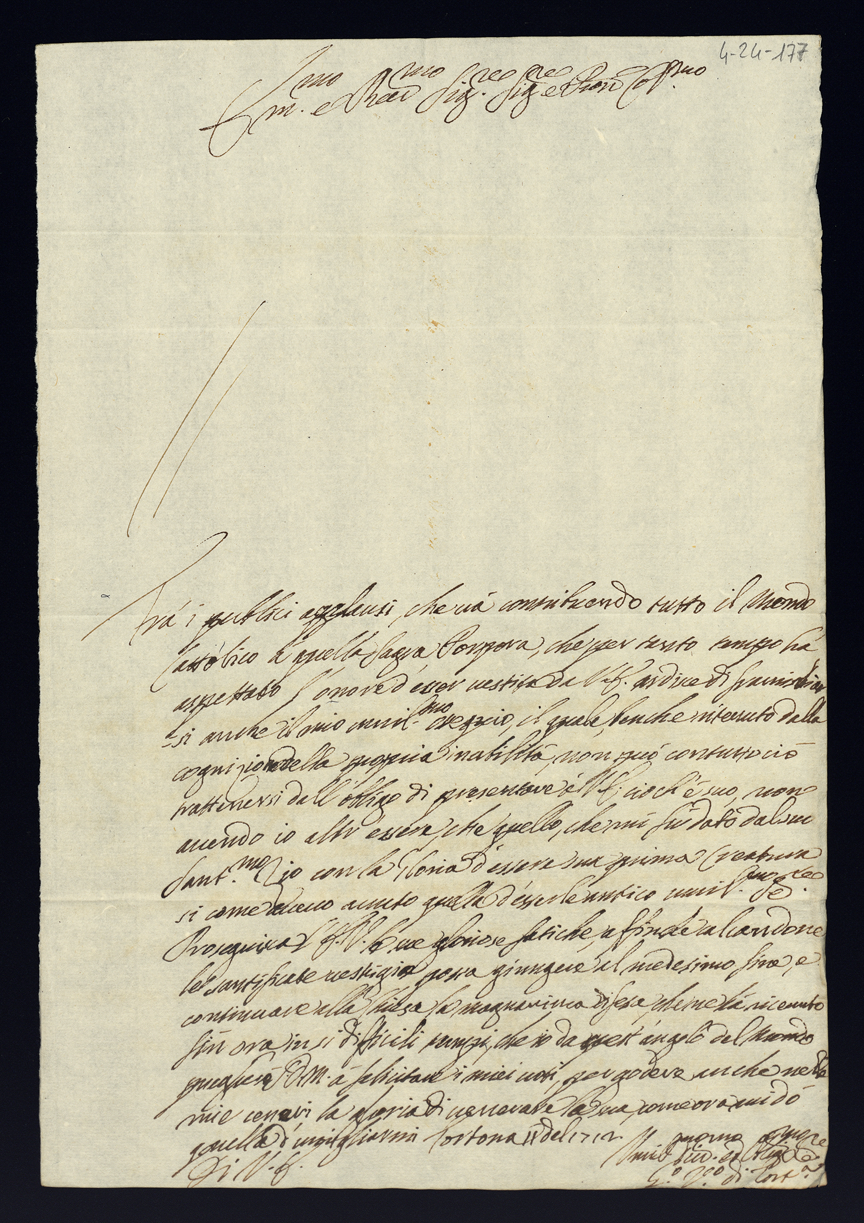 4-24-177
Em.mo e Rev.mo Sig.re Sig.re e Pron Co.mo
Frà i publici applausi, che và contribuendo tutto il Mondo
Cattolico à quella Sagra Porpora, che per tanto tempo hà
aspettato l'onore d'esser vestita da V. E. ardisce di
-si anche il mio umil.mo ossequio, il quale, benche ritenuto dalla
cognizione della propria inabilità, non può contuttociò
trattenersi dall'obligo di presentare à V. E. cioch'è suo, non
avendo io altr'essere, che quello, che mi fù dato dal suo
Sant.mo Zio con la gloria d'essere sua prima Creatura
si come avuto quella d'esserle antico umil.mo
Proseguisca V. E. le sue gloriose fatiche, affinche calcandone
le santificate vestigia possa giungere al medesimo fine, e
continuare alla Chiesa la magnanima difesa che ne hà ricevuto
fin ora in si difficili tempi, che io da quest'angolo del Mondo
pregherò S. D. M. à felicitare i miei voti, per godere anche nelle
mie ceneri la gloria di venerare la sua, come ora mi dò
quella d'umiliarmi Tortona 11 del 1712
Di V. E.
Umil.mo
di Tort.a